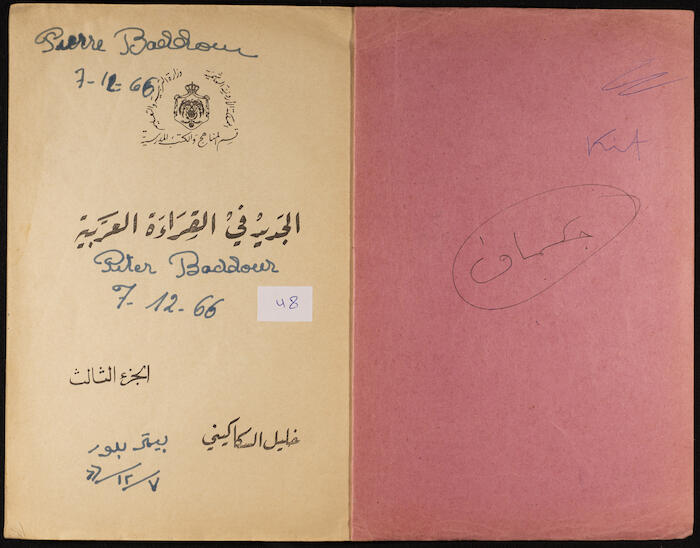 Pierre Baddour
7-12-66
المملكة الأردنية الهاشمية
وزارة التربية والتعليم
قسم المناهج والكتب المدرسية
الجَديدُ فيْ القِرَاءَة العَرَبيَّة
Peter Baddour
7-12-66
48
الجزء الثالث
خليل السكاكيني
بيتر بدور
٧/١٢/٦٦
Kit